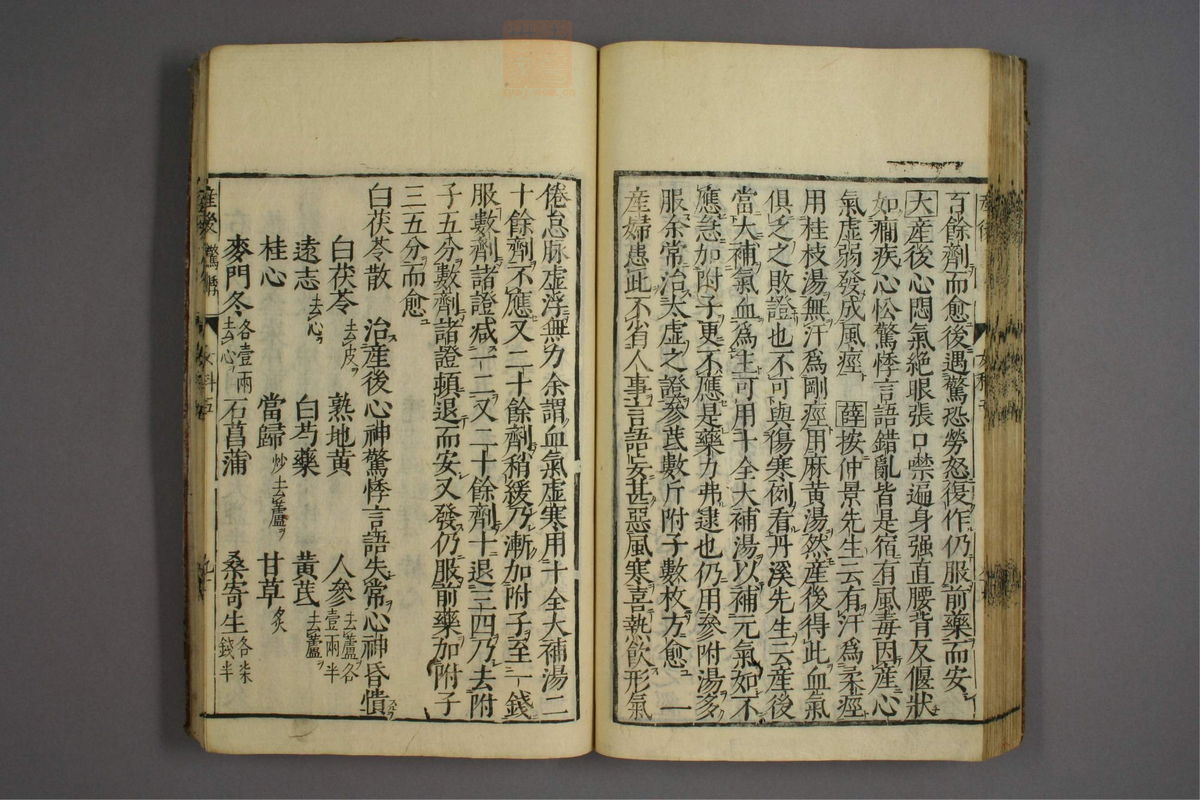 百餘劑而愈後遇驚恐勞怒復作仍服前藥而安
大產後心悶氣絶眼張口噤遍身强直腰背反偃狀
如癎疾心忪驚悸言語錯亂皆是宿有風毒因産心
氣虛弱發成風痙 薛按仲景先生云有汗為柔痙
用桂枝湯無汗為剛痙用麻黄湯然産後得此血氣
俱乏之敗證也不可與傷寒例看丹溪先生云産後
當大補氣血為主可用十全大補湯以補元氣如不
應急加附子更不應是藥力弗逮也仍用參附湯多
服余常治大虛之證參芪數斤附子數枚方愈 一
産婦患此不省人事言語妄甚惡風寒喜熱飲形氣
倦怠脉虛浮無力余謂血氣虛寒用十全大補湯二
十餘劑不應又二十餘劑稍緩乃漸加附子至一錢
服數劑諸證减一二又二十餘劑十退三四乃去附
子五分數劑諸證頓退而安又發仍服前藥加附子
三五分而愈
白茯苓散 治産後心神驚悸言語失常心神昏憒
白茯苓去皮ヲ 熟地黄 人參去蘆ヲ各壹兩半
遠志去心ヲ 白芍藥 黄芪去蘆ヲ
桂心 當歸炒去蘆ヲ 甘草炙
麥門冬各壹兩去心ヲ 石菖蒲 桑寄生各柒錢半
産後 驚悸 女科五 九十